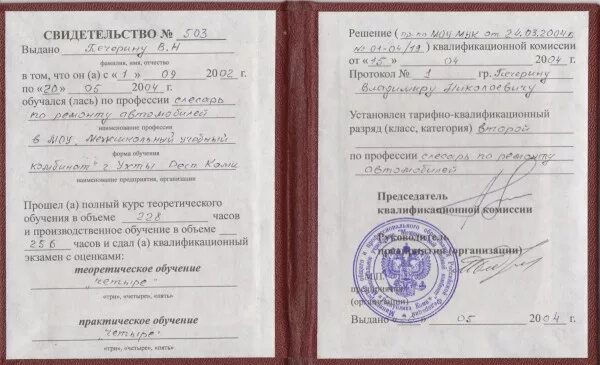 СВИДЕТЕЛЬСТВО № 503
Выдано Печерину В.Н
фамилия, имя, отчество
в том, что он (а) с «1» 09 2002 г.
по «20» 05 2004 г.
обучался (лась) по профессии слесарь
по ремонту автомобилей
наименование профессии
в МОУ, Межшкольный учебный
форма обучения
комбинат" г Ухты Респ Коми
наименование предприятия, организации
Прошел (а) полный курс теоретического
обучения в объеме 228 часов
и производственное обучение в объеме
256 часов и сдал (а) квалификационный
экзамен с оценками:
теоретическое обучение
"четыре"
«три», «четыре», «пять»
практическое обучение
"четыре"
«три», «четыре», «пять»
Решение (пр-по МОУ МУК от 24.03.2004г
№ 01-04/19) квалификационной комиссии
от «15» 04 2004 г.
Протокол № 1 гр. Печерину
Владимиру Николаевичу
Установлен тарифно-квалификационный
разряд (класс, категория) второй
по профессии слесарь по ремонту
автомобилей
Председатель
квалификационной комиссии
Руководитель
предприятия (организации)
М.П.
предприятия
(организации)
Выдано 05 2004 г.